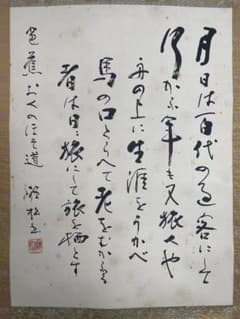 月日は百代の過客にして
行かふ年も又旅人や
舟の上に生涯をうかべ
馬の口とらへて老をむかふる
者は日々旅にして旅を栖とす
芭蕉 おくのほそ道